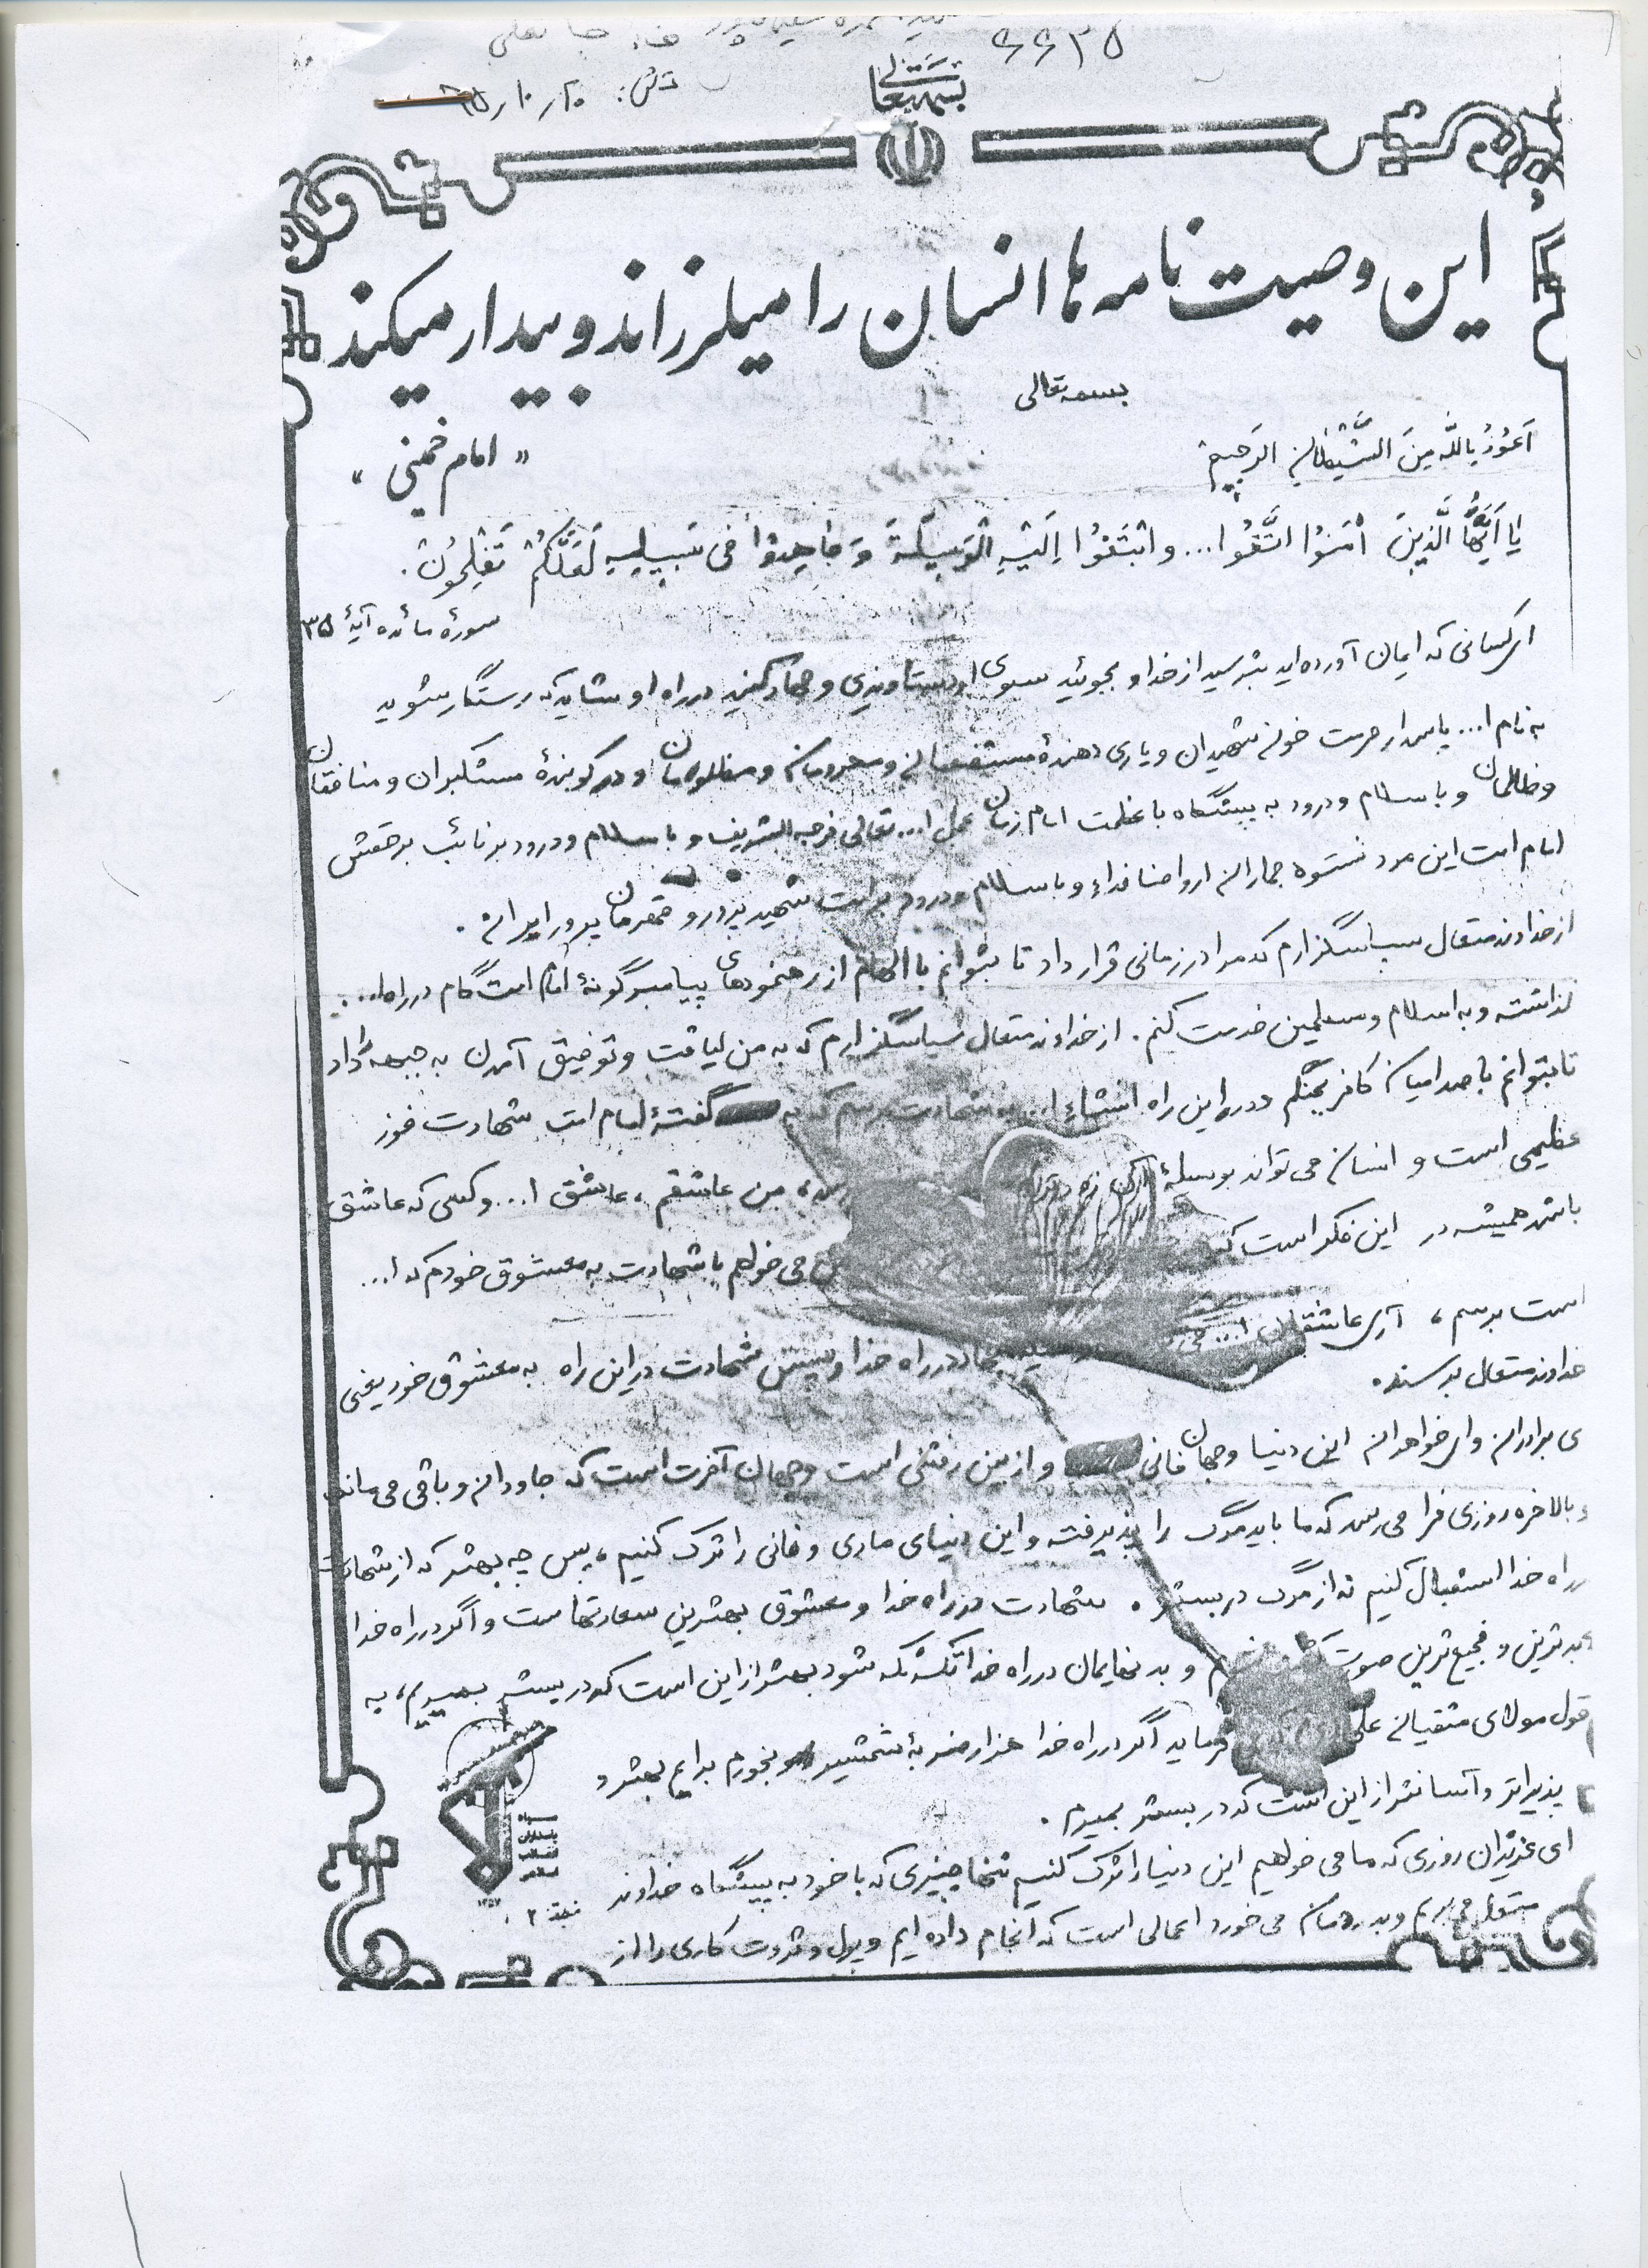 ۶۶۳۵
بسمه‌تعالی
این وصیت نامه ها انسان را میلرزاند و بیدار میکند
بسمه‌تعالی
« امام خمینی »
اَعُوذُ بِاللّهِ مِنَ الشَّیْطانِ الرَّجیمْ
یا اَیُّهَا الَّذینَ امَنُوا اتَّقُوا ا... و ابْتَغُوا اِلَیْهِ الْوَسیلَةَ وَ جاهِدوُا فی سَبیلِهِ لَعَلَّکُمْ تُفْلِحُونَ.
سورهٔ مائده آیهٔ ۳۵
ای کسانی که ایمان آورده اید بترسید از خدا و بجوئید سوی او دستاویزی و جهاد کنید در راه او شاید که رستگار شوید
به نام ا... پاسدار حرمت خون شهیدان و یاری دهندهٔ مستضعفان و محرومان و مظلومان و در کوبندهٔ مستکبران و منافقان
و ظالمان و با سلام و درود به پیشگاه با عظمت امام زمان عجل ا... تعالی فرجه الشریف و با سلام و درود بر نائب بر حقش
امام امت این مرد نستوه جماران ارواحنا فداء و با سلام و درود بر امت شهید پرور و قهرمان پرور ایران.
از خداوند متعال سپاسگزارم که مرا در زمانی قرار داد تا بتوانم با الهام از رهنمودهای پیامبر گونهٔ امام امت گام در راه ا...
گذاشته و به اسلام و مسلمین خدمت کنم. از خداوند متعال سپاسگزارم که به من لیاقت و توفیق آمدن به جبهه را داد
تا بتوانم با صدامیان کافر بجنگم و در این راه انشاء ا... به شهادت برسم که به گفتهٔ امام امت شهادت فوز
عظیمی است و انسان می تواند بوسیلهٔ من عاشقم، عاشق ا... و کسی که عاشق
باشد همیشه در این فکر است که من می خواهم با شهادت به معشوق خودم که ا...
است برسم، آری عاشقان ا... جهاد در راه خدا و سپس شهادت در این راه به معشوق خود یعنی
خداوند متعال برسند.
ی برادران و ای خواهران این دنیا و جهان فانی و از بین رفتنی است و جهان آخرت است که جاودان و باقی می ماند
و بالاخره روزی فرا می رسد که ما باید مرگ را پذیرفته و این دنیای مادی و فانی را ترک کنیم، پس چه بهتر که از شهادت
در راه خدا استقبال کنیم نه از مرگ در بستر. شهادت در راه خدا و معشوق بهترین سعادتهاست و اگر در راه خدا
به بدترین و فجیع ترین صورت و بدنهایمان در راه خدا تکه تکه شود بهتر از این است که در بستر بمیریم، به
قول مولای متقیان علی فرماید اگر در راه خدا هزار ضربهٔ شمشیر بخورم برایم بهتر و
پذیراتر و آسانتر از این است که در بستر بمیرم.
ای عزیزان روزی که ما می خواهیم این دنیا را ترک کنیم تنها چیزی که با خود به پیشگاه خداوند
متعال می بریم و بدردمان می خورد اعمالی است که انجام داده ایم و پول و ثروت کاری را از
سپاه
پاسداران
انقلاب
اسلامی